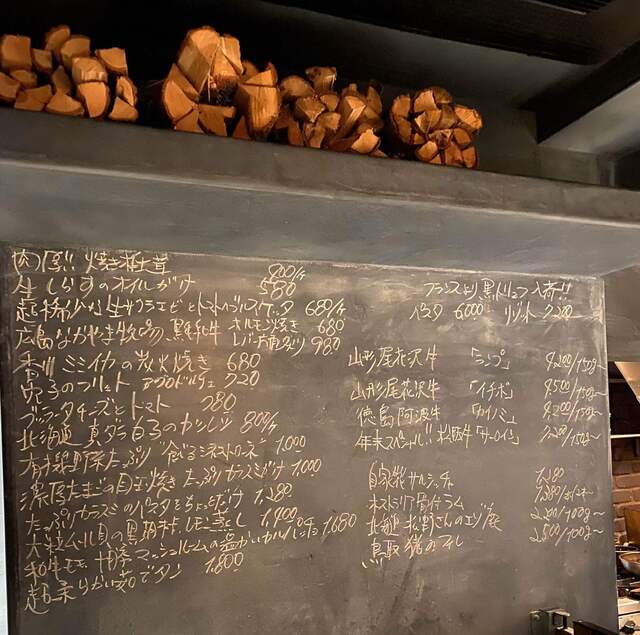 肉厚!! 焼き椎茸 800/ケ
生しらすのオイルがけ 580
超希少な生サクラエビとトマトのブルスケッタ 680/ケ
広島なかやま牧場 黒毛和牛 ホルモン焼き 680
レバー 980
ミミイカの炭火焼き 680
穴子のフリット 720
ブッラータチーズとトマト 980
北海道 真ダラ白子のカツレツ 800/ケ
有機野菜たっぷり "食べるミネストローネ" 1,000
濃厚たまごの目玉焼き たっぷりカラスミがけ 1,000
たっぷりカラスミのパスタをちょっとだけ 1,280
大粒ムール貝の黒胡椒 蒸し 1,400
和牛モモ 十勝マッシュルームの温かいカルパッチョ 1,680
超柔らかい茹でタン 1,800
フランスより黒トリュフ入荷!!
パスタ 6,000 リゾット
山形尾花沢牛 「ランプ」 4,200/150g〜
山形尾花沢牛 「イチボ」 4,500/150g〜
徳島阿波牛 「カイノミ」 4,200/150g〜
年末スペシャル!! 松阪牛 「サーロイン」 /150g〜
自家製サルシッチャ 1,280
骨付ラム
北海道 松野さんのエゾ鹿 2,200/100g〜
鳥取 猪のフィレ 2,500/100g〜